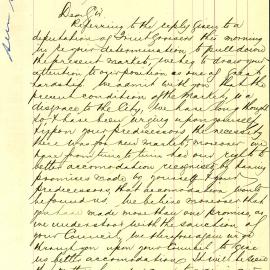 Dear Sir
Referring to the reply given to a
deputation of Fruit Grocers this morning
by re your determination to pull down
the present markets, we beg to draw your
attention to our position as one of Great
hardship. We admit with you that the
present condition of the Market is a
disgrace to the City, We have long thought
so, & have been urging upon yourself
& upon your predecessors the necessity
there was for new market, moreover we
have from time to time had our right to
better accomodation recognised by having
promises made by yourself & your
predecessors, that accomodation would
be found us. We believe moreover that
you have made more than one promise, as
we understood with the sanction of
your Council, we therefore again
through you upon your Council to give
us better accomodation. It will be seen